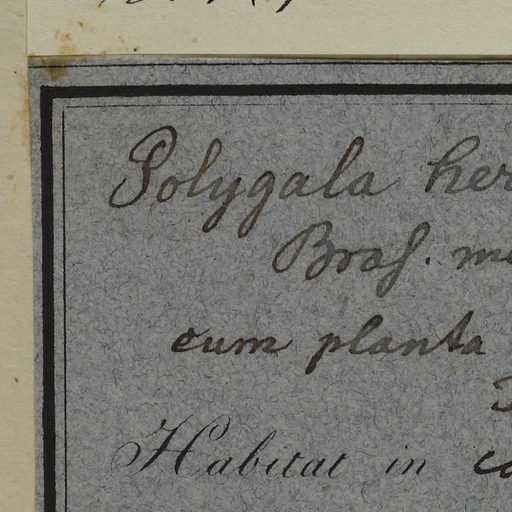 Polygala her
Bras. m
cum planta
Habitat in c